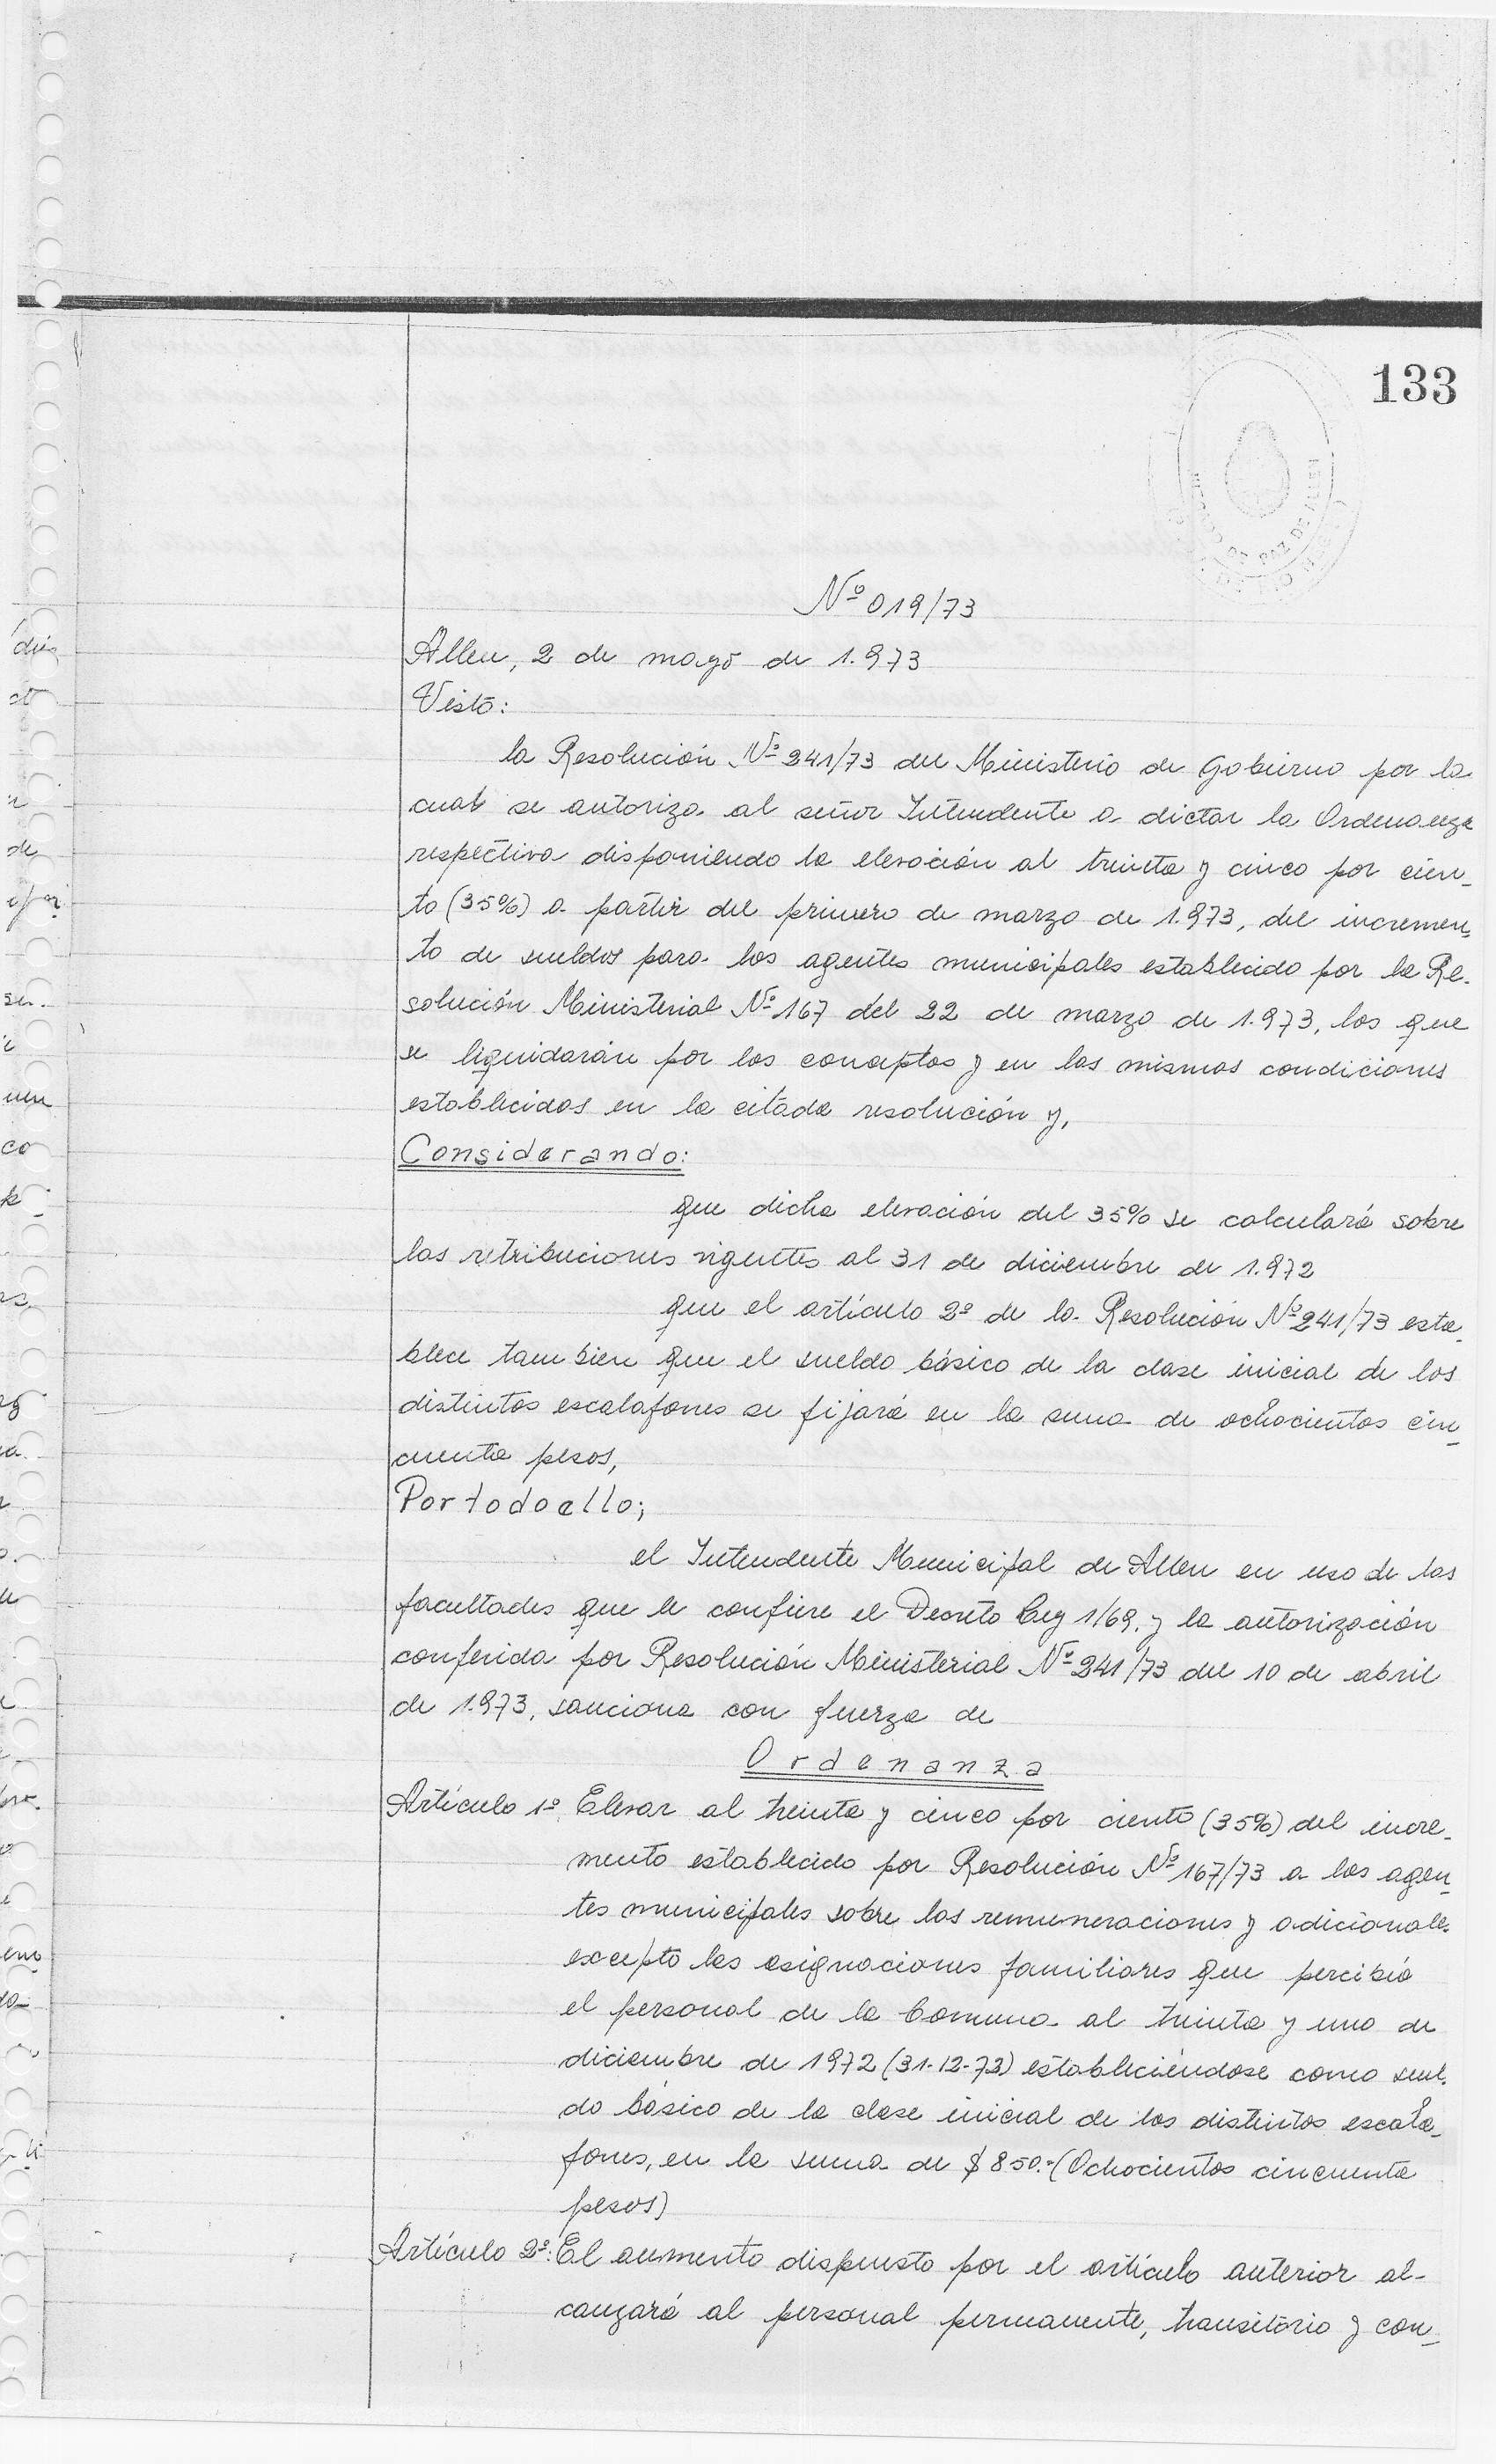 133
Nº 019/73
Allen, 2 de mayo de 1.973
Visto:
la Resolución Nº 241/73 del Ministerio de Gobierno por la
cual se autoriza al señor Intendente a dictar la Ordenanza
respectiva disponiendo la elevación al treinta y cinco por cien_
to (35%) a partir del primero de marzo de 1.973, del incremen_
to de sueldos para los agentes municipales establecido por la Re_
solución Ministerial Nº 167 del 22 de marzo de 1.973, los que
se liquidarán por los conceptos y en las mismas condiciones
establecidas en la citada resolución y,
Considerando:
que dicha elevación del 35% se calculará sobre
las retribuciones vigentes al 31 de diciembre de 1.972
que el artículo 2º de la Resolución Nº 241/73 esta_
blece tambien que el sueldo básico de la clase inicial de los
distintos escalafones se fijará en la suma de ochocientos cin_
cuenta pesos,
Por todo ello;
el Intendente Municipal de Allen en uso de las
facultades que le confiere el Decreto Ley 1/69, y la autorización
conferida por Resolución Ministerial Nº 241/73 del 10 de abril
de 1.973, sanciona con fuerza de
Ordenanza
Artículo 1º Elevar al treinta y cinco por ciento (35%) del incre_
mento establecido por Resolución Nº 167/73 a los agen_
tes municipales sobre las remuneraciones y adicionales
excepto las asignaciones familiares que percibía
el personal de la Comuna al treinta y uno de
diciembre de 1972 (31-12-72) estableciéndose como suel_
do básico de la clase inicial de los distintos escala_
fones, en la suma de $ 850.- (Ochocientos cincuenta
pesos)
Artículo 2º: El aumento dispuesto por el artículo anterior al-
canzará al personal permanente, transitorio y con_